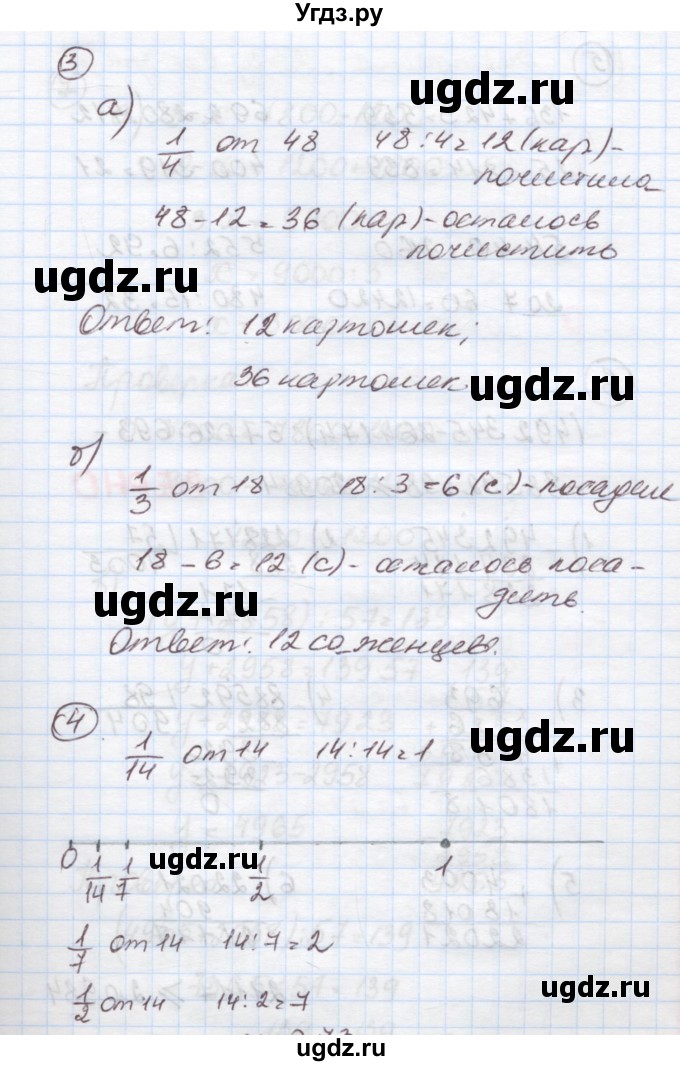 Угдз.ру
3
ugdz.ru
а)
1/4 от 48 48:4=12 (кар)-
почистила
48-12=36 (кар)-осталось
почистить
ugdz.ru
Ответ: 12 картошек;
36 картошек.
ugdz.ru
б)
1/3 от 18 18:3=6 (с)-посадили
18-6=12 (с)-осталось поса-
дить.
ugdz.ru
Ответ: 12 саженцев.
4
ugdz.ru
1/14 от 14 14:14=1
0 1/14 1/7 1/2 1
ugdz.ru
1/7 от 14 14:7=2
1/2 от 14 14:2=7
ugdz.ru
ugdz.ru